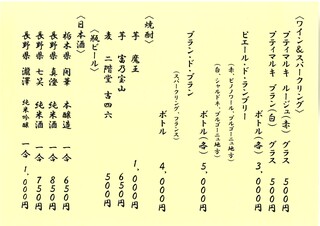 〈ワイン&スパークリング〉
プティマルキ ルージュ(赤) グラス 500円
プティマルキ ブラン(白) グラス 500円
ボトル(各) 3,000円
ピエール・ド・ランブリー
(赤、ピノノワール、ブルゴーニュ地方)
(白、シャルドネ、ブルゴーニュ地方)
ボトル(各) 5,000円
ブラン・ド・ブラン
(スパークリング、フランス)
ボトル 4,000円
〈焼酎〉
芋 魔王 1,000円
芋 富乃宝山 650円
麦 二階堂 吉四六 500円
〈瓶ビール〉
〈日本酒〉
栃木県 開華 本醸造 一合 650円
長野県 真澄 純米酒 一合 850円
長野県 七笑 純米酒 一合 750円
長野県 瀧澤 純米吟醸 一合 1,000円